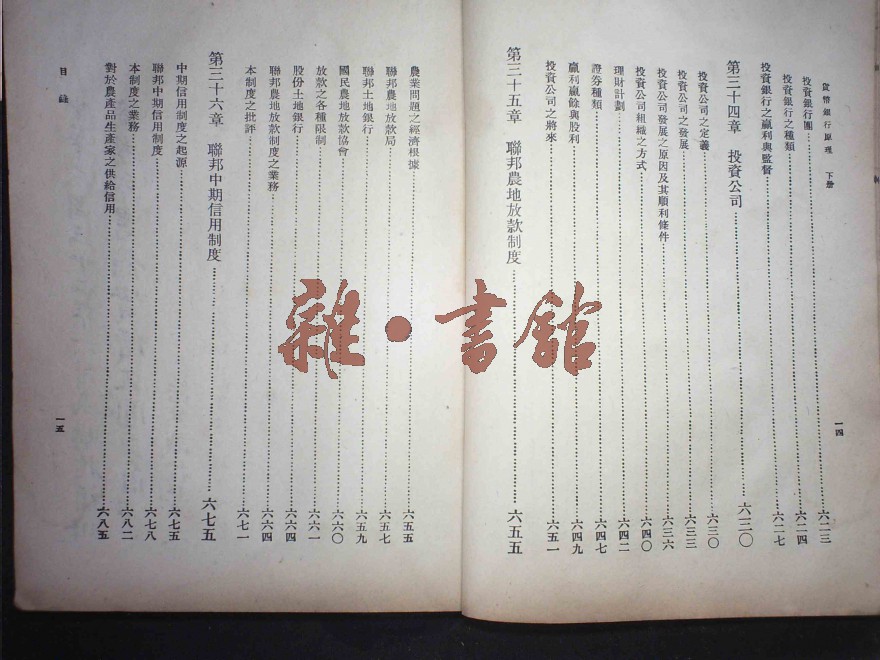 貨幣銀行原理 下册
一四
投資銀行團……六二三
投資銀行之種類……六二四
投資銀行之贏利與監督……六二七
第三十四章 投資公司……六三〇
投資公司之定義……六三〇
投資公司之發展……六三三
投資公司發展之原因及其順利條件……六三六
投資公司組織之方式……六四〇
理財計劃……六四二
證劵種類……六四七
贏利贏餘與股利……六四九
投資公司之將來……六五一
第三十五章 聯邦農地放款制度……六五五
農業問題之經濟根據……六五五
聯邦農地放款局……六五七
聯邦土地銀行……六五九
國民農地放款協會……六六〇
放款之各種限制……六六一
股份土地銀行……六六四
聯邦農地放款制度之業務……六六四
本制度之批評……六七一
第三十六章 聯邦中期信用制度……六七五
中期信用制度之起源……六七五
聯邦中期信用制度……六七八
本制度之業務……六八二
對於農產品生產家之供給信用……六八五
目錄
一五
雜·書館